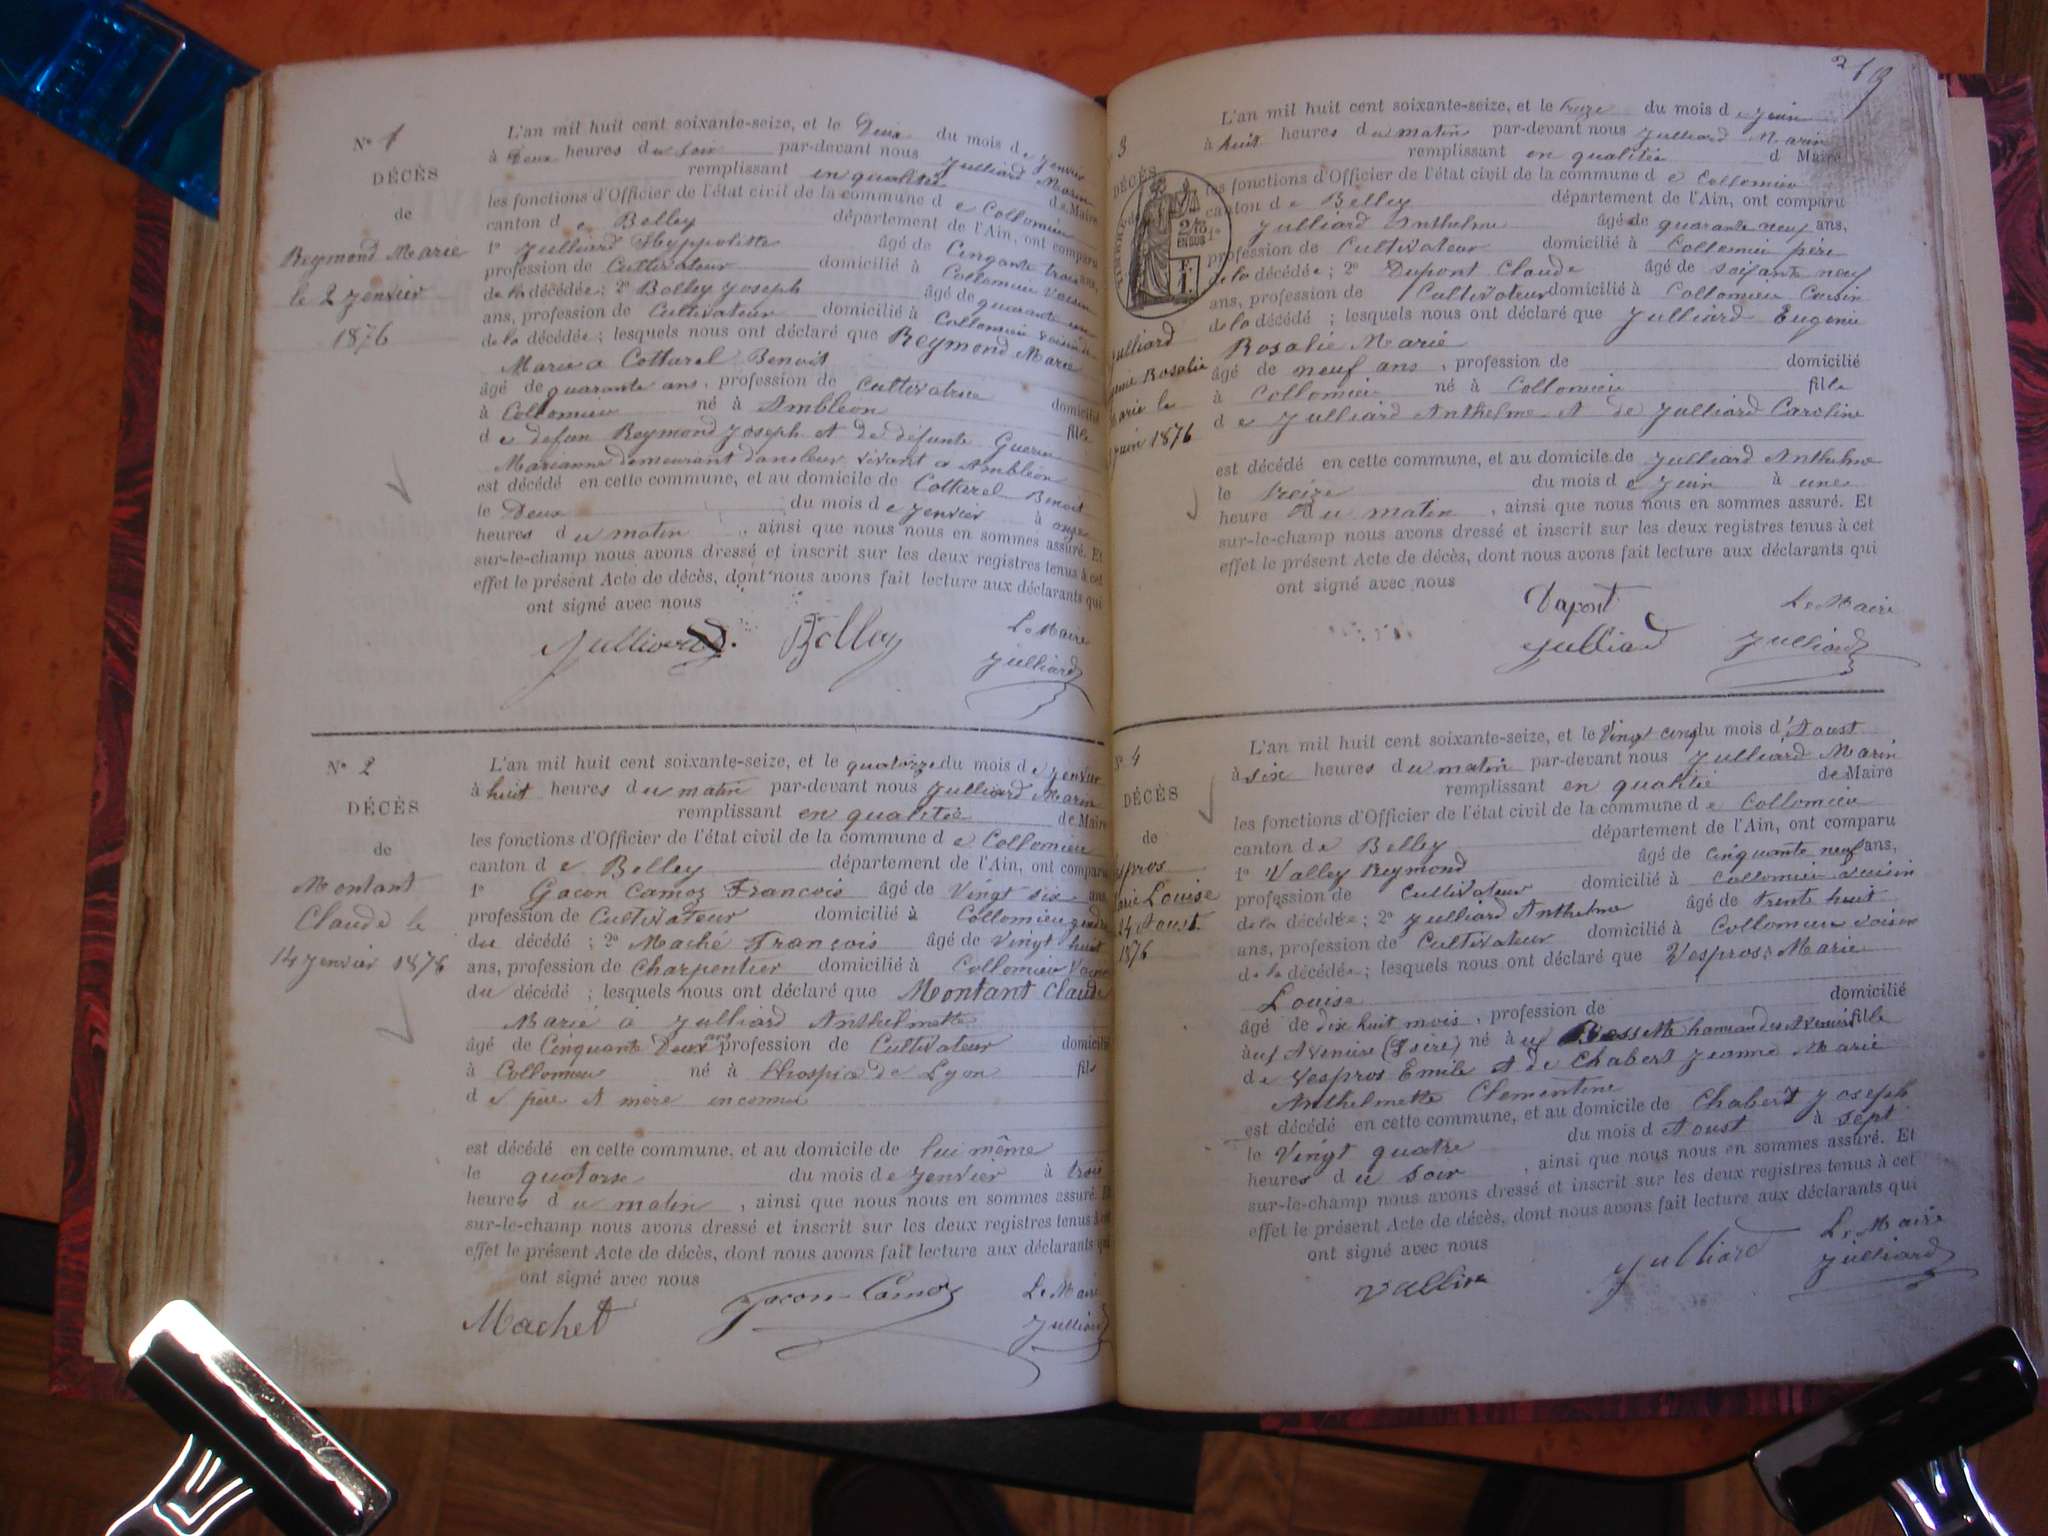 N° 1
DÉCÈS
de
Reymond Marie
le 2 Jenvier
1876
L'an mil huit cent soixante-seize, et le Deux du mois de Jenvier
à Deux heures du soir par-devant nous Julliard Marin
remplissant en qualitée de Maire
les fonctions d'Officier de l'état civil de la commune de Collomieu
canton de Belley département de l'Ain, ont comparu
1° Julliard Hyppolitte âgé de Cinqante trois ans,
profession de Cultivateur domicilié à Collomieu voisin
de la décédée; 2° Bolley Joseph âgé de quarante un
ans, profession de Cultivateur domicilié à Collomieu voisin
de la décédée; lesquels nous ont déclaré que Reymond Marie
Mariee a Cottarel Benoit
âgé de quarante ans, profession de Cultivatrice domicilié
à Collomieu né à Ambléon fille
de defun Reymond Joseph et de défunte Guerin
Marianne demeurant dans leur vivant a Ambléon
est décédé en cette commune, et au domicile de Cottarel Benoit
le Deux du mois de Jenvier à onze
heures du matin, ainsi que nous nous en sommes assuré. Et
sur-le-champ nous avons dressé et inscrit sur les deux registres tenus à cet
effet le présent Acte de décès, dont nous avons fait lecture aux déclarants qui
ont signé avec nous
Le Maire
Julliard Bolley Julliard
N° 2
DÉCÈS
de
Montant
Claude le
14 Jenvier 1876
L'an mil huit cent soixante-seize, et le quatorze du mois de Jenvier
à huit heures du matin par-devant nous Julliard Marin
remplissant en qualitée de Maire
les fonctions d'Officier de l'état civil de la commune de Collomieu
canton de Belley département de l'Ain, ont comparu
1° Gacon Camoz Francois âgé de Vingt six ans
profession de Cultivateur domicilié à Collomieu gendre
du décédé; 2° Maché François âgé de Vingt huit
ans, profession de Charpentier domicilié à Collomieu
du décédé; lesquels nous ont déclaré que Montant Claude
Marié a Julliard Anthelmette
âgé de Cinquante Deux ans profession de Cultivateur domicilié
à Collomieu né à Lhospice de Lyon fils
de père et mère inconnu
est décédé en cette commune, et au domicile de lui même
le quatorse du mois de Jenvier à trois
heures du matin, ainsi que nous nous en sommes assuré. Et
sur-le-champ nous avons dressé et inscrit sur les deux registres tenus à cet
effet le présent Acte de décès, dont nous avons fait lecture aux déclarants qui
ont signé avec nous
Le Maire
Machet Gacon-Camoz Julliard
219
3
DÉCÈS
2/10
EN SUS
Julliard
Rosalie
Marie le
Juin 1876
L'an mil huit cent soixante-seize, et le treize du mois de Juin
à huit heures du matin par-devant nous Julliard Marin
remplissant en qualitée d Maire
les fonctions d'Officier de l'état civil de la commune de Collomieu
canton de Belley département de l'Ain, ont comparu
1° Julliard Anthelme âgé de quarante neuf ans,
profession de Cultivateur domicilié à Collomieu père
de la décédée; 2° Dupont Claude âgé de soixante neuf
ans, profession de Cultivateur domicilié à Collomieu Cousin
de la décédé; lesquels nous ont déclaré que Julliard Eugenie
Rosalie Marie
âgé de neuf ans, profession de domicilié
à Collomieu né à Collomieu fille
de Julliard Anthelme et de Julliard Caroline
est décédé en cette commune, et au domicile de Julliard Anthelme
le treize du mois de Juin à une
heure du matin, ainsi que nous nous en sommes assuré. Et
sur-le-champ nous avons dressé et inscrit sur les deux registres tenus à cet
effet le présent Acte de décès, dont nous avons fait lecture aux déclarants qui
ont signé avec nous
Dupont Le Maire
Julliard Julliard
N° 4
DÉCÈS
de
Vespros
Marie Louise
24 Aoust
1876
L'an mil huit cent soixante-seize, et le Vingt cinq du mois d'Aoust
à six heures du matin par-devant nous Julliard Marin
remplissant en qualitée de Maire
les fonctions d'Officier de l'état civil de la commune de Collomieu
canton de Belley département de l'Ain, ont comparu
1° Valley Reymond âgé de cinquante neuf ans,
profession de Cultivateur domicilié à Collomieu voisin
de la décédée; 2° Julliard Anthelme âgé de trente huit
ans, profession de Cultivateur domicilié à Collomieu voisin
de la décédée; lesquels nous ont déclaré que Vespros Marie
Louise
âgé de dix huit mois, profession de domicilié
aux Avenière (Isère) né à hameau des Avenières fille
de Vespros Emile et de Chabert Jeanne Marie
Anthelmette Clementine
est décédé en cette commune, et au domicile de Chabert Joseph
le Vingt quatre du mois d Aoust à sept
heures du soir, ainsi que nous nous en sommes assuré. Et
sur-le-champ nous avons dressé et inscrit sur les deux registres tenus à cet
effet le présent Acte de décès, dont nous avons fait lecture aux déclarants qui
ont signé avec nous
Le Maire
Julliard Julliard